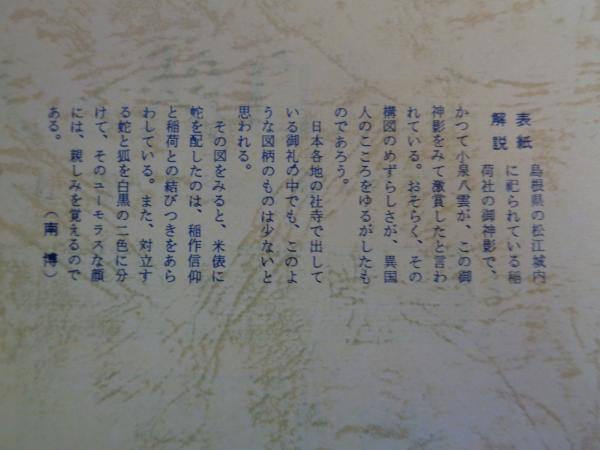 表紙
解説
島根県の松江城内
に祀られている稲
荷社の御神影で、
かつて小泉八雲が、この御
神影をみて激賞したと言わ
れている。おそらく、その
構図のめずらしさが、異国
人のこころをゆるがしたも
のであろう。
日本各地の社寺で出して
いる御札の中でも、このよ
うな図柄のものは少ないと
思われる。
その図をみると、米俵に
蛇を配したのは、稲作信仰
と稲荷との結びつきをあら
わしている。また、対立す
る蛇と狐を白黒の二色に分
けて、そのユーモラスな顔
には、親しみを覚えるので
ある。
（南　博）